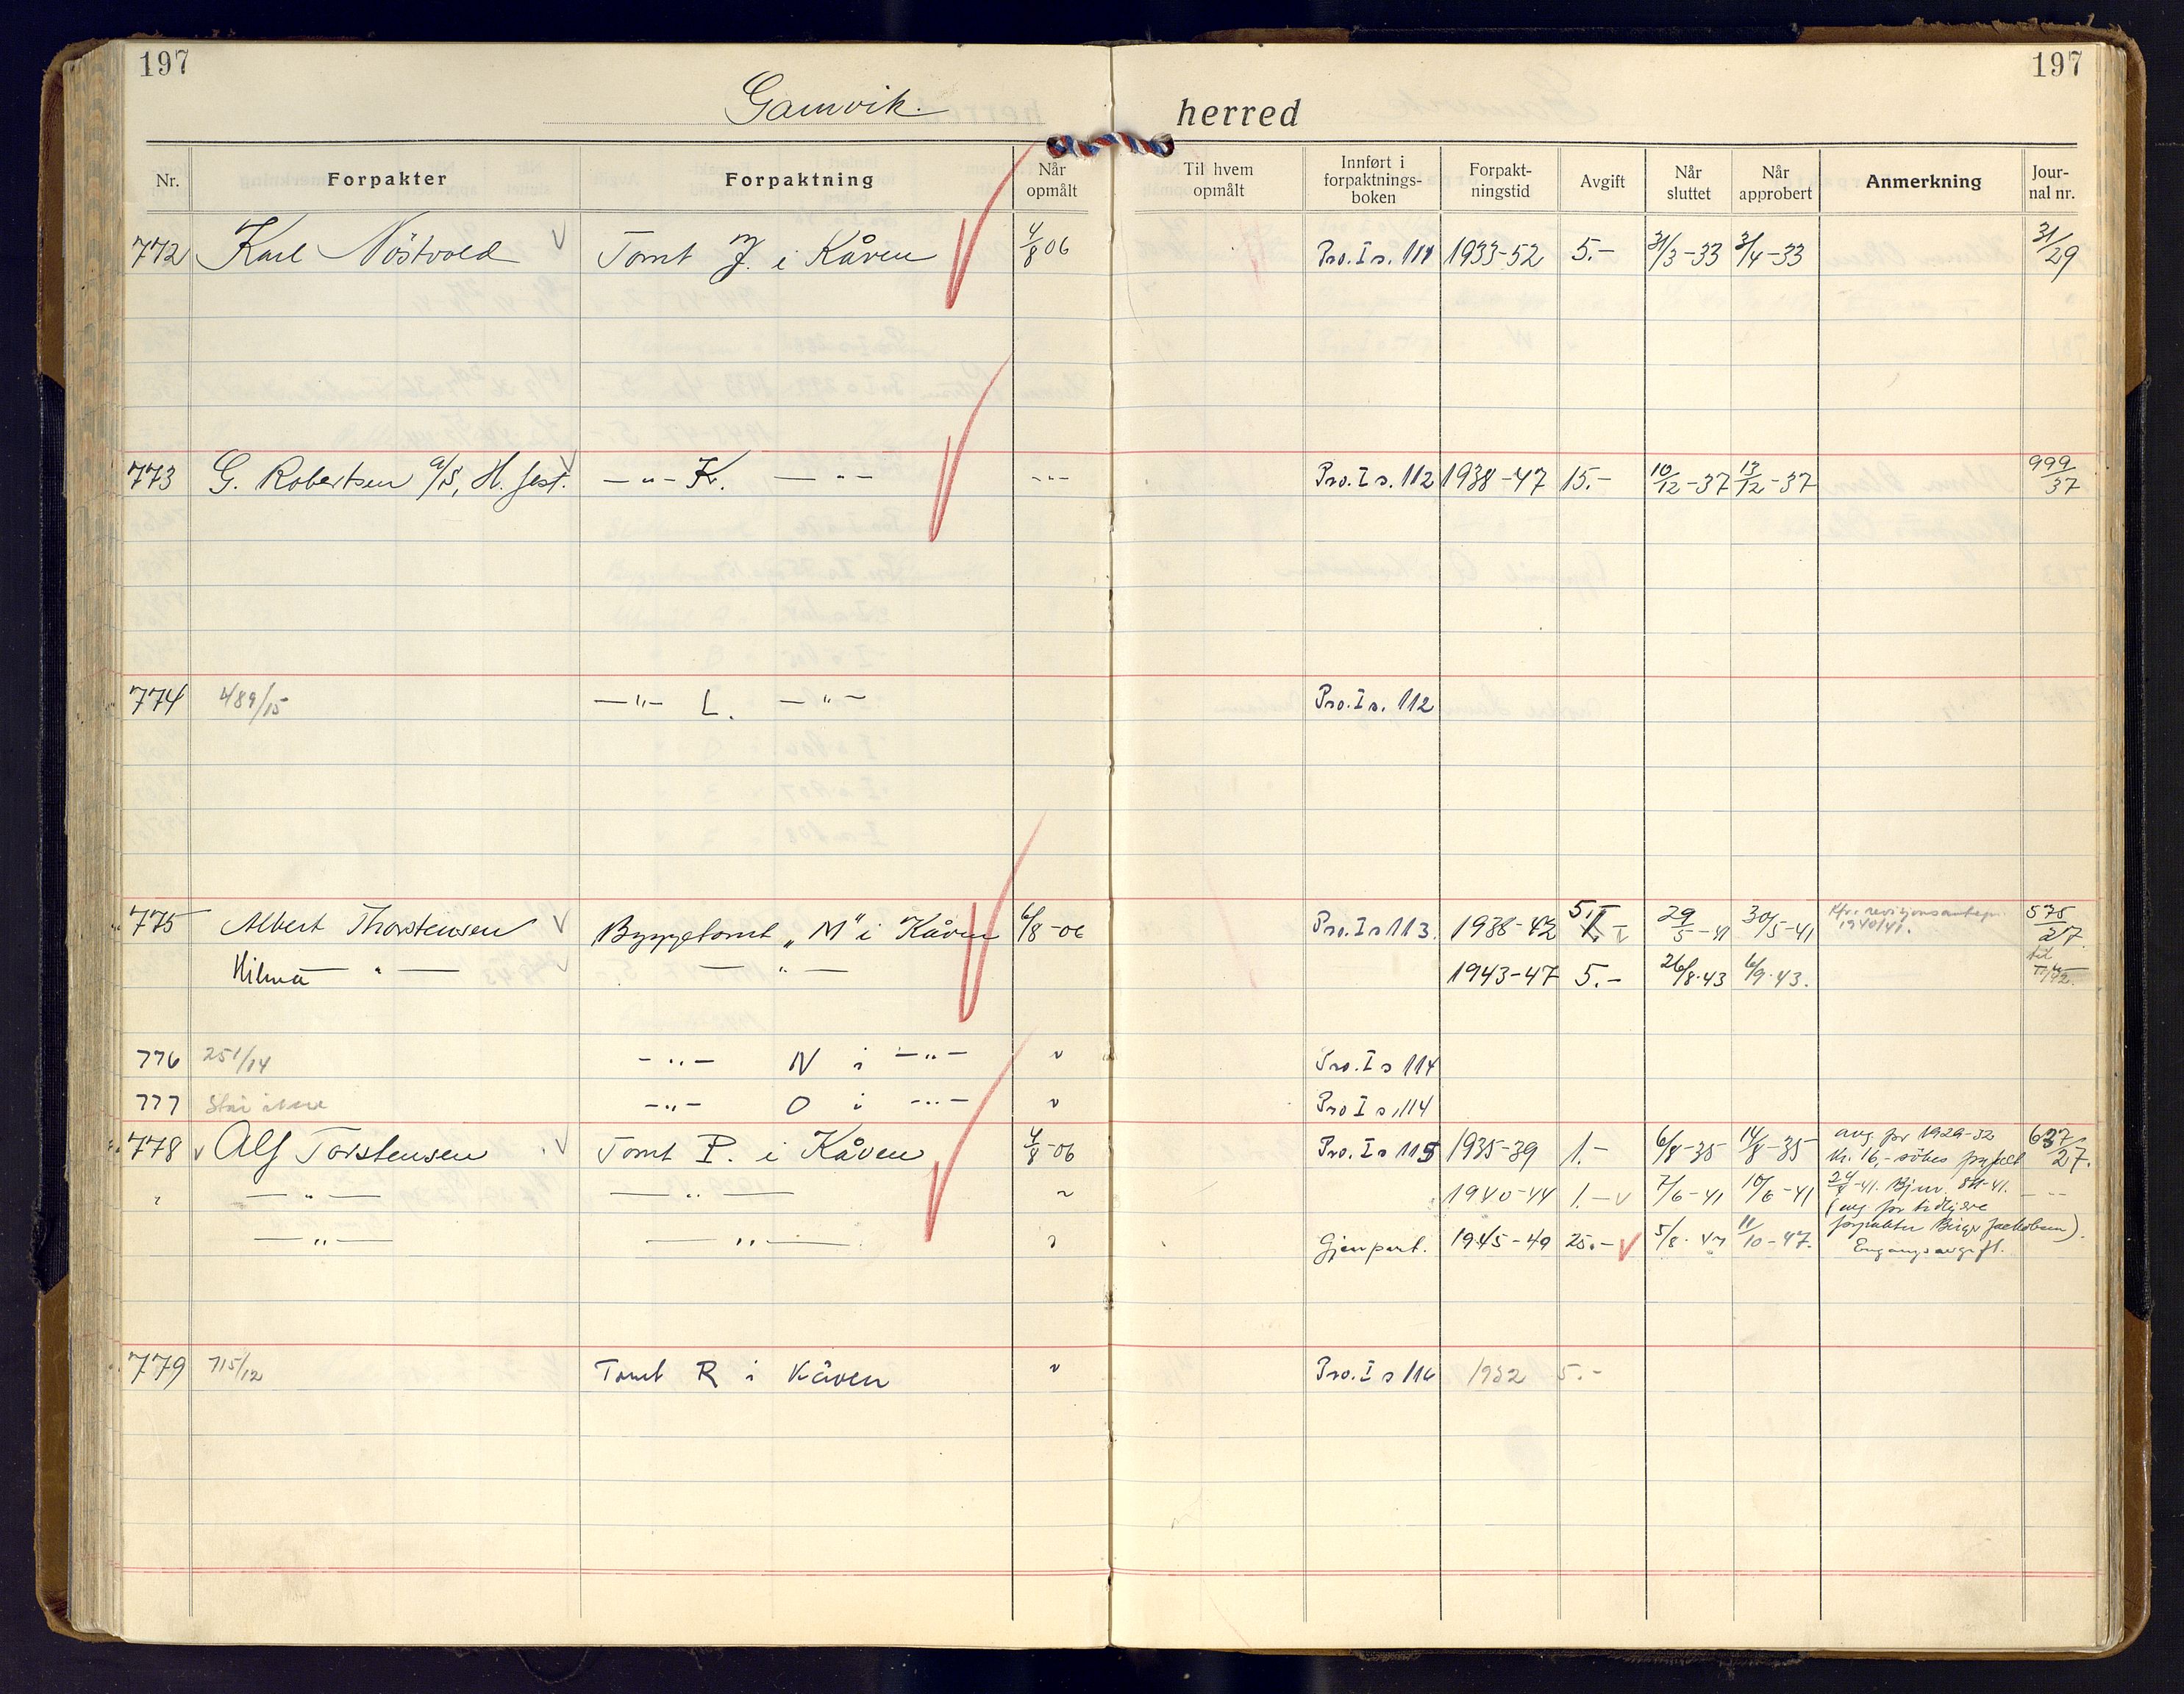 197 197
Gamvik. herred
Nr. Forpakter Forpaktning Når opmålt Til hvem opmålt Innført i forpaktnings-boken Forpakt-ningstid Avgift Når sluttet Når approbert Anmerkning Jour-nal nr.
772 Karl Nöstvold V Tomt J. i Kåven 4/8 06 Pro. I s. 111 1933-52 5.- 31/3-33 3/4-33 31/29
773 G. Robertsen a/S, H.fest. — " - K. — " - - " - Pro. I s. 112 1938-47 15.- 10/12-37 13/12-37 999/37
774 489/15 — " — L. — " — Pro. I s. 112
775 Albert Thorstensen V Byggetomt „M" i Kåven 6/8-06 Pro. I s 113. 1938-42 5,- 1.- 29/5-41 30/5-41 Kfr. revisjonsantegn. 1940/41. 575/27.
Hilma — " — V — " — 1943-47 5.- 26/8.43 6/9.43. til
776 251/14 - " - N i - " - " Pro. I s 114
777 Står ikke - " - O i - " - " Pro I s. 114
778 v Alf Torstensen V Tomt P. i Kåven 4/8-06 Pro. I s 115 1935-39 1.- 6/8-35 14/8-35 avg. for 1929-32 637/27.
kr. 16,- sökes frafalt
" — " — — " — " 1940-44 1.- v 7/6-41 10/6-41 -41. Bjur. 8/11-41. - " -
(avg. for tidligere
forpakter Birger Jackobsen).
— " — — " — " Gjenpart. 1945-49 25.- V 5/8. 47 11/10-47. Engangsavgift.
779 715/12 Tomt R i Kåven " Pro. I s 116 1932 5.-